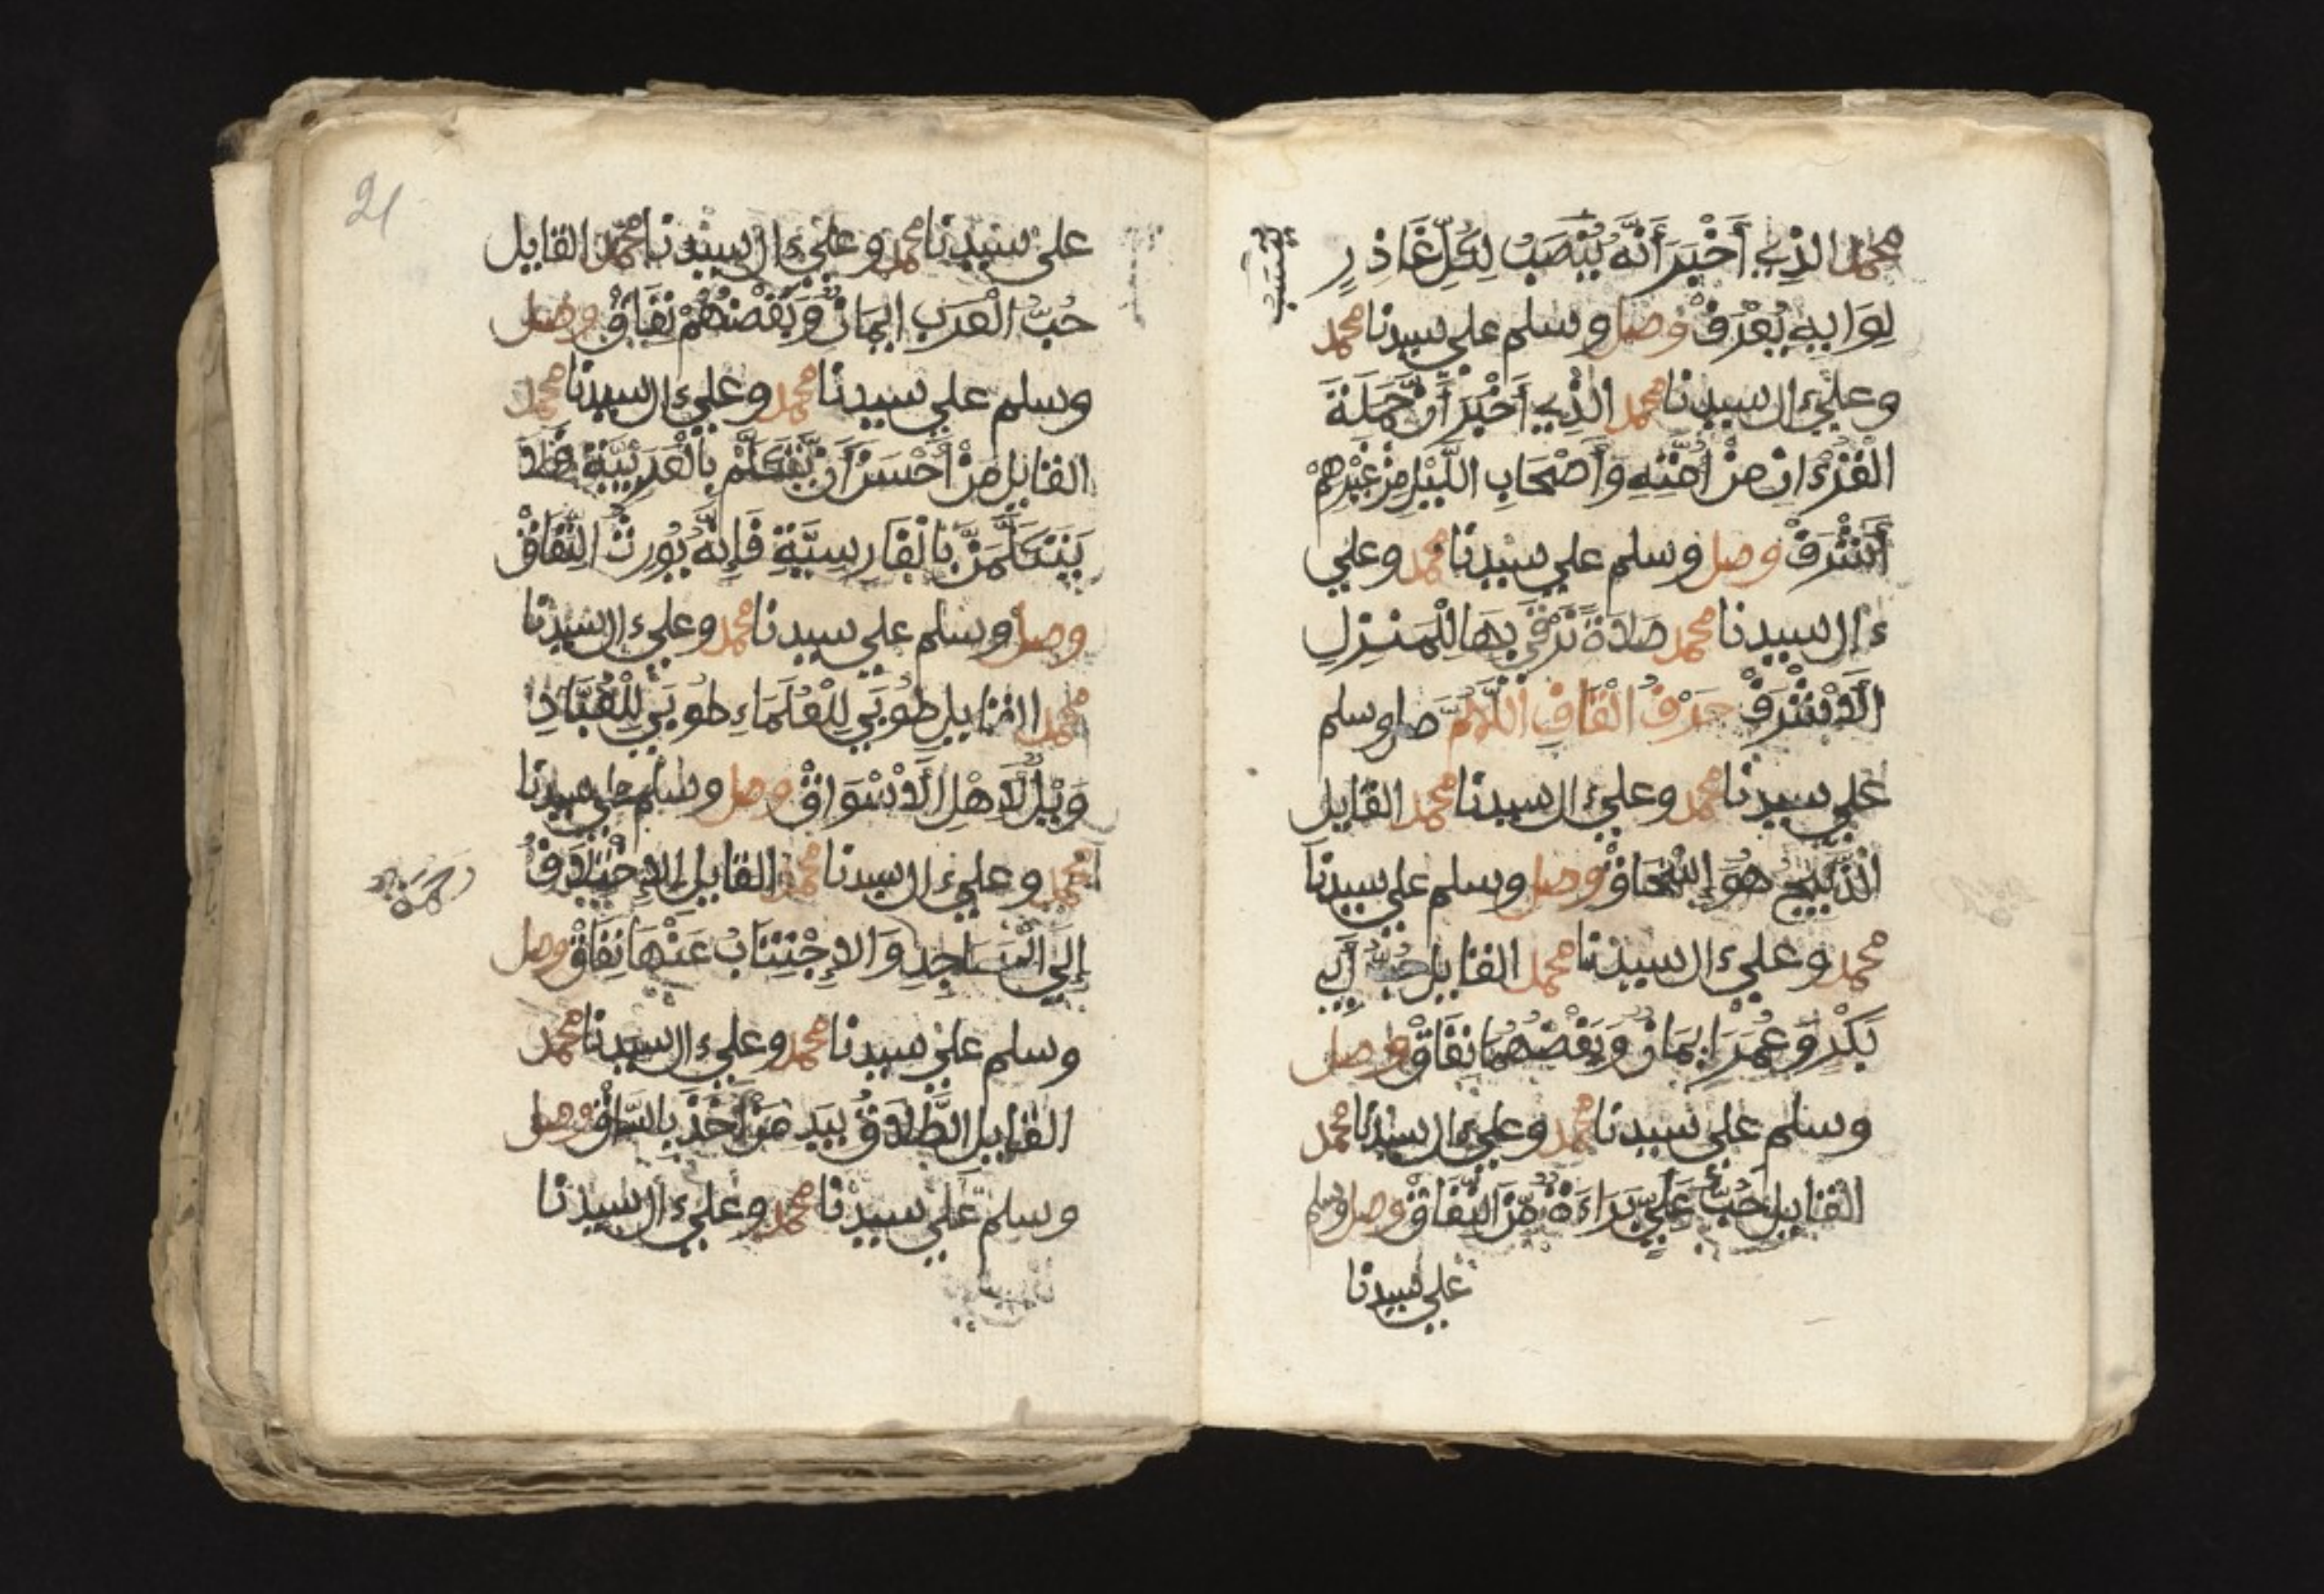 محمد الذي أَخْبَرَ أَنَّهُ يُنْصَبُ لِكُلِّ غَادِرٍ
لِوَايِهِ يُعْرَفْ وصل وسلم علي سيدنا محمد
وعلي ءال سيدنا محمد الذي أَخْبَرَ أَنَّ حَمَلَةَ
الْقُرْءَانِ مِنْ أُمَّتِهِ وَأَصْحَابِ اللَّيْلِ مِنْ غَيْرِهِمْ
أَشْرَفْ وصل وسلم علي سيدنا محمد وعلي
ءال سيدنا محمد صَلَاةً نَرْقَى بِهَا لِلْمَنْزِلِ
الَاشْرَفْ حَرْفُ الْقَافِ اللَّهُمَّ صل وسلم
علي سيدنا محمد وعلي ءال سيدنا محمد القايل
الذَّبِيحُ هُوَ إِسْحَاقْ وصل وسلم علي سيدنا
محمد وعلي ءال سيدنا محمد القايل حُبُّ أَبِي
بَكْرٍ وَعُمَرَ إيمَانٌ وَبُغْضُهُمَا نِفَاقْ وصل
وسلم علي سيدنا محمد وعلي ءال سيدنا محمد
القايل حُبُّ عَلِيٍّ بَرَاءَةٌ مِّنَ النِّفَاقْ وصل وسلم
علي سيدنا
21
علي سيدنا محمد وعلي ءال سيدنا محمد القايل
حُبُّ الْعَرَبِ إيمَانٌ وَبُغْضُهُمْ نِفَاقْ وصل
وسلم علي سيدنا محمد وعلي ءال سيدنا محمد
القايل مَنْ أَحْسَنَ أَنْ يَّتَكَلَّمَ بِالْعَرَبِيَّةِ فَلَا
يَتَكَلَّمَنَّ بِالْفَارِسِيَّةِ فَإِنَّهُ يُورِثُ النِّفَاقْ
وصل وسلم علي سيدنا محمد وعلي ءال سيدنا
محمد القايل طُوبَى لِلْعُلَمَاءِ طُوبَى لِلْعُبَّادِ
وَيْلٌ لِّأَهْلِ الَاسْوَاقْ وصل وسلم علي سيدنا
محمد وعلي ءال سيدنا محمد القايل الِاخْتِلَافُ
إِلَى الْمَسَاجِدِ وَالِاجْتِنَابُ عَنْهَا نِفَاقْ وصل
وسلم علي سيدنا محمد وعلي ءال سيدنا محمد
القايل الطَّلَاقُ بِيَدِ مَنْ أَخَذَ بِالسَّاقْ وصل
وسلم علي سيدنا محمد وعلي ءال سيدنا